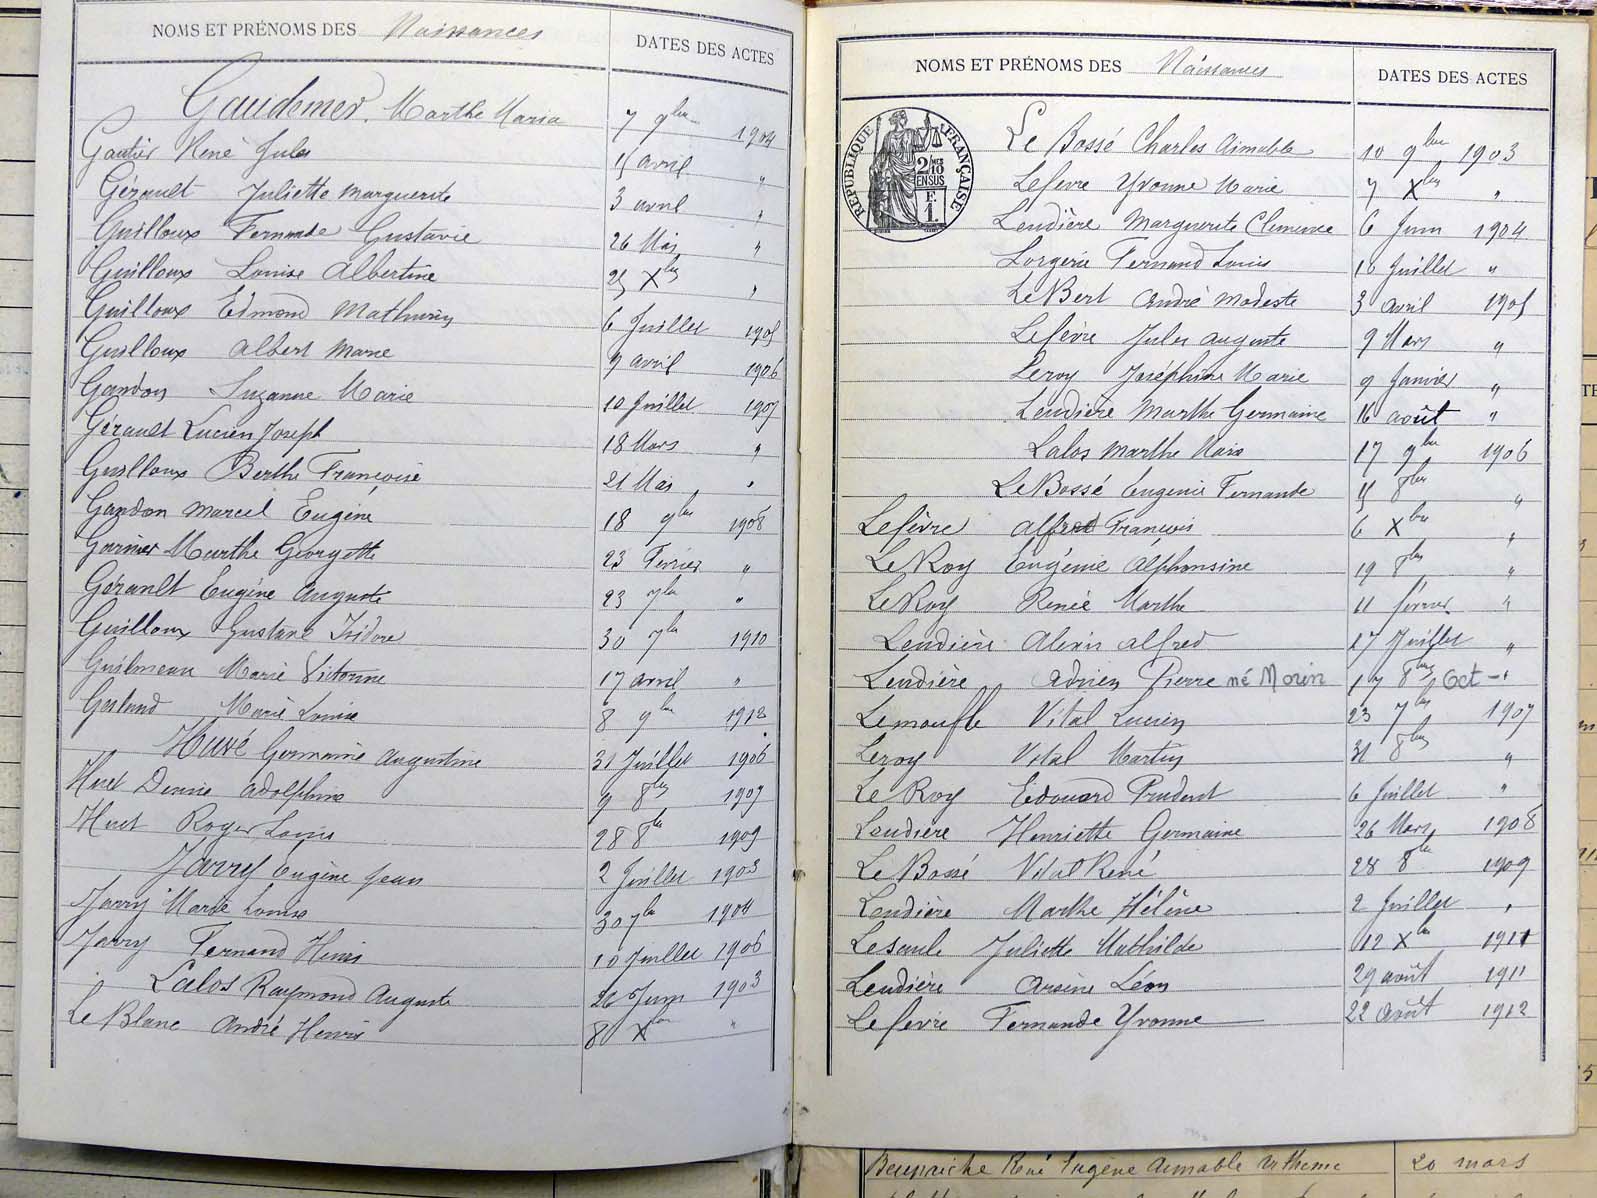 NOMS ET PRÉNOMS DES Naissances DATES DES ACTES
Gaudemer Marthe Maria 7 9bre 1904
Gautier René Jules 15 avril "
Gérault Juliette Marguerite 3 avril "
Guilloux Fernande Gustavie 26 Mai "
Guilloux Louise Albertine 25 Xbre "
Guilloux Edmond Mathurin 6 Juillet 1905
Guilloux Albert Marie 9 avril 1906
Gandon Suzanne Marie 10 Juillet 1907
Gérault Lucien Joseph 18 Mars "
Guilloux Berthe Françoise 21 Mai "
Gandon Marcel Eugène 18 9bre 1908
Garnier Marthe Georgette 23 Février "
Gérault Eugène Auguste 23 7bre "
Guilloux Gustave Isidore 30 7bre 1910
Guilmeau Marie Victorine 17 avril "
Gasland Marie Louise 8 9bre 1912
Huvé Germaine Augustine 31 Juillet 1906
Huet Denise Adolphine 9 8bre 1907
Huet Roger Louis 28 8bre 1909
Jarry Eugène Jean 2 Juillet 1903
Jarry Marie Louise 30 7bre 1904
Jarry Fernand Henri 10 Juillet 1906
Lalos Raymond Auguste 26 Juin 1903
Le Blanc André Henri 8 Xbre "
NOMS ET PRÉNOMS DES Naissances DATES DES ACTES
RÉPUBLIQUE FRANÇAISE
2/10
EN SUS
Le Bossé Charles Aimable 10 9bre 1903
Lefevre Yvonne Marie 7 Xbre "
Lendière Marguerite Clemence 6 Juin 1904
Lorgerie Fernand Louis 16 Juillet "
Le Bert André Modeste 3 avril 1905
Lefèvre Jules Auguste 9 Mars "
Leroy Joséphine Marie 9 Janvier "
Lendière Marthe Germaine 16 août "
Lalos Marthe Marie 17 9bre 1906
Le Bossé Eugenie Fernande 15 8bre "
Lefèvre Alfred François 6 Xbre "
Le Roy Eugénie Alphonsine 19 8bre "
Le Roy Renée Marthe 11 février "
Lendière Alexis Alfred 17 Juillet "
Lendière Adrien Pierre né Morin 17 8bre Oct - "
Lemoufle Vital Lucien 23 7bre 1907
Leroy Vital Martin 31 8bre "
Le Roy Edouard Prudent 6 Juillet "
Lendière Henriette Germaine 26 Mars 1908
Le Bossé Vital René 28 8bre 1909
Lendière Marthe Hélène 2 Juillet "
Lesaule Juliette Mathilde 12 Xbre 1911
Lendière Arsène Léon 29 août 1911
Lefevre Fernande Yvonne 22 août 1912
René Eugène Aimable 20 mars